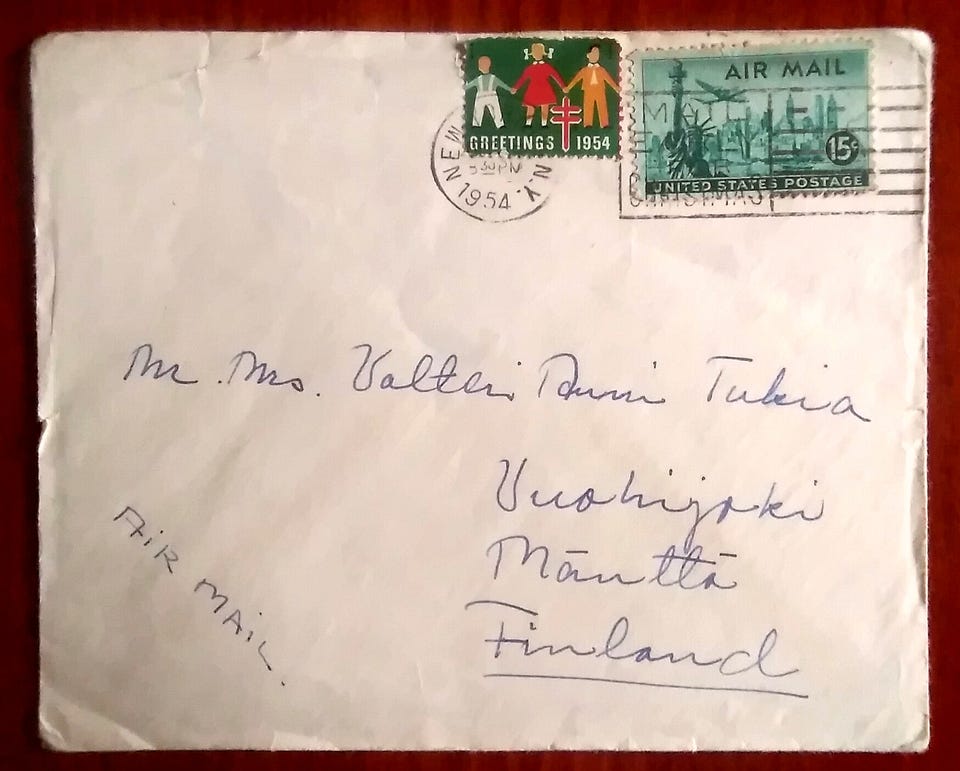 GREETINGS 1954
AIR MAIL
15¢
UNITED STATES POSTAGE
NEW N.Y.
5 30 PM
1954
MAIL
CHRISTMAS
Mr. Mrs. Valteri Tukia
Vuohijoki
Mänttä
Finland
AIR MAIL.